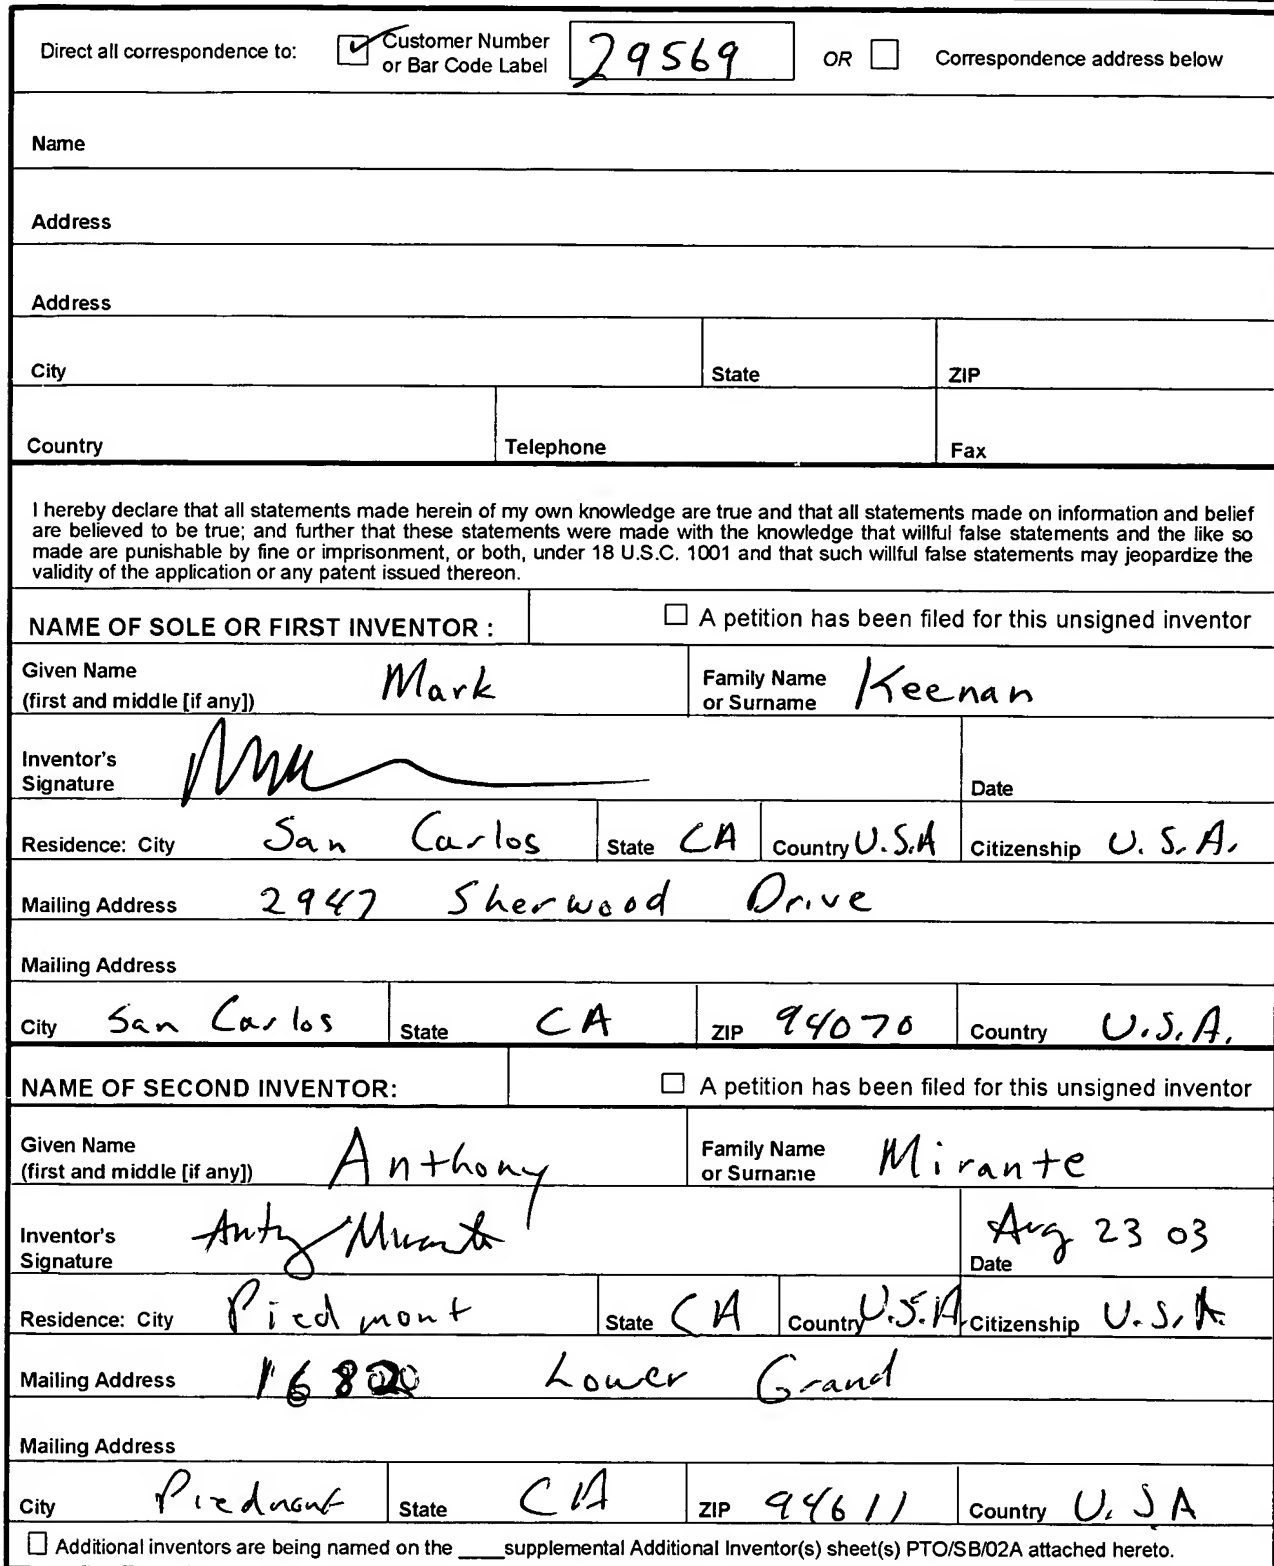 Direct all correspondence to: Customer Number or Bar Code Label 29569 OR Correspondence address below
Name
Address
Address
City State ZIP
Country Telephone Fax
I hereby declare that all statements made herein of my own knowledge are true and that all statements made on information and belief
are believed to be true; and further that these statements were made with the knowledge that willful false statements and the like so
made are punishable by fine or imprisonment, or both, under 18 U.S.C. 1001 and that such willful false statements may jeopardize the
validity of the application or any patent issued thereon.
NAME OF SOLE OR FIRST INVENTOR : A petition has been filed for this unsigned inventor
Given Name
(first and middle [if any]) Mark Family Name
or Surname Keenan
Inventor's
Signature Date
Residence: City San Carlos State CA Country U.S.A Citizenship U.S.A.
Mailing Address 2947 Sherwood Drive
Mailing Address
City San Carlos State CA ZIP 94070 Country U.S.A.
NAME OF SECOND INVENTOR: A petition has been filed for this unsigned inventor
Given Name
(first and middle [if any]) Anthony Family Name
or Surname Mirante
Inventor's
Signature Date Aug 23 03
Residence: City Piedmont State CA Country U.S.A. Citizenship U.S.A.
Mailing Address Lower Grand
Mailing Address
City Piedmont State CA ZIP 94611 Country U.SA
Additional inventors are being named on the ____supplemental Additional Inventor(s) sheet(s) PTO/SB/02A attached hereto.